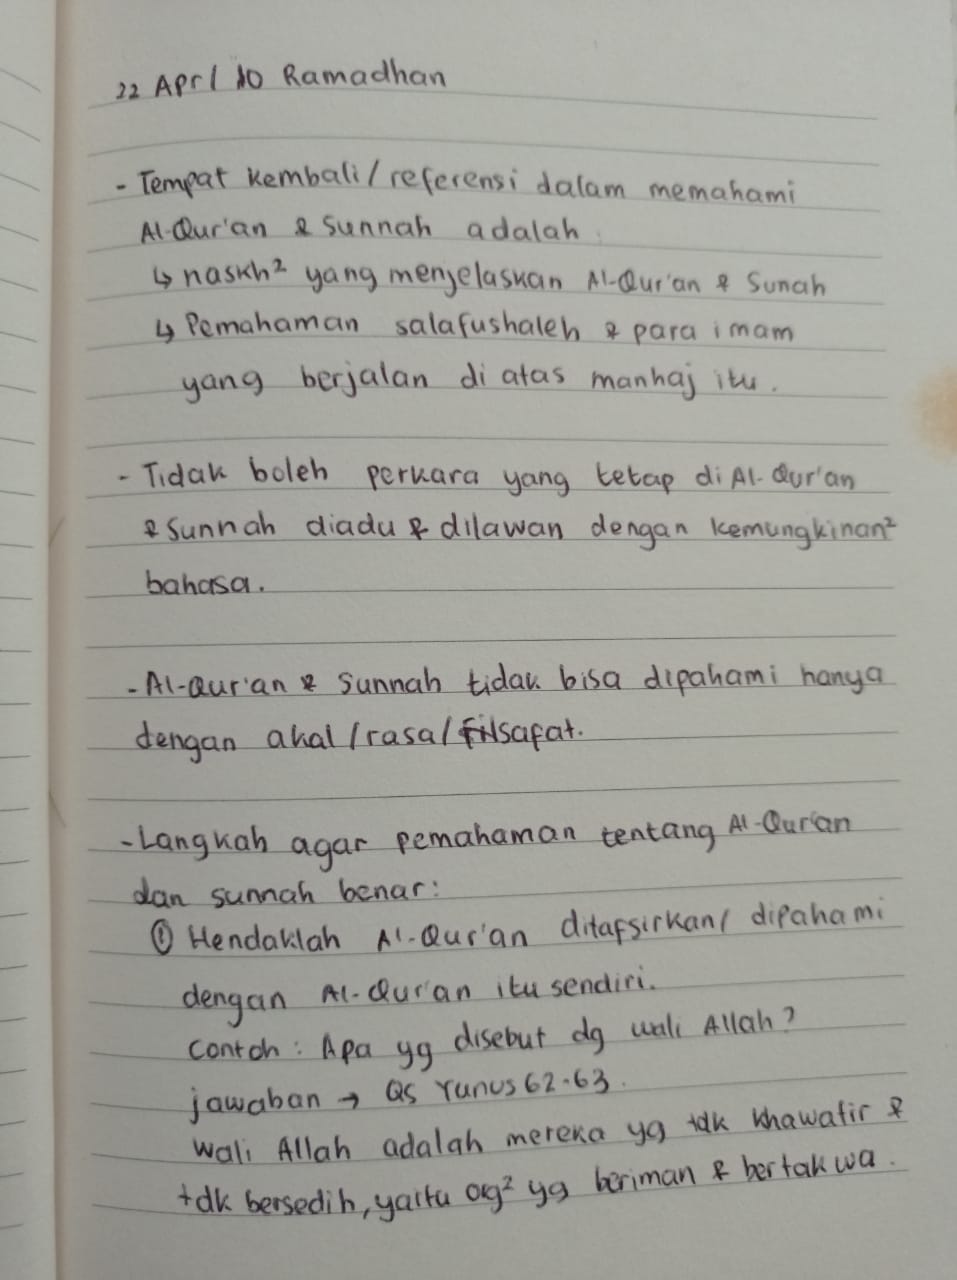 22 Aprl 10 Ramadhan
- Tempat kembali/referensi dalam memahami
Al-Qur'an & sunnah adalah
↳ naskh² yang menjelaskan Al-Qur'an & Sunah
↳ Pemahaman salafushaleh & para imam
yang berjalan di atas manhaj itu.
- Tidak boleh perkara yang tetap di Al-Qur'an
& Sunnah diadu & dilawan dengan kemungkinan²
bahasa.
- Al-Qur'an & sunnah tidak bisa dipahami hanya
dengan akal/rasa/filsafat.
- Langkah agar pemahaman tentang Al-Qur'an
dan sunnah benar:
① Hendaklah Al-Qur'an ditafsirkan/dipahami
dengan Al-Qur'an itu sendiri.
Contoh: Apa yg disebut dg wali Allah?
jawaban → QS Yunus 62-63.
Wali Allah adalah mereka yg tdk khawatir &
tdk bersedih, yaitu org² yg beriman & bertakwa.